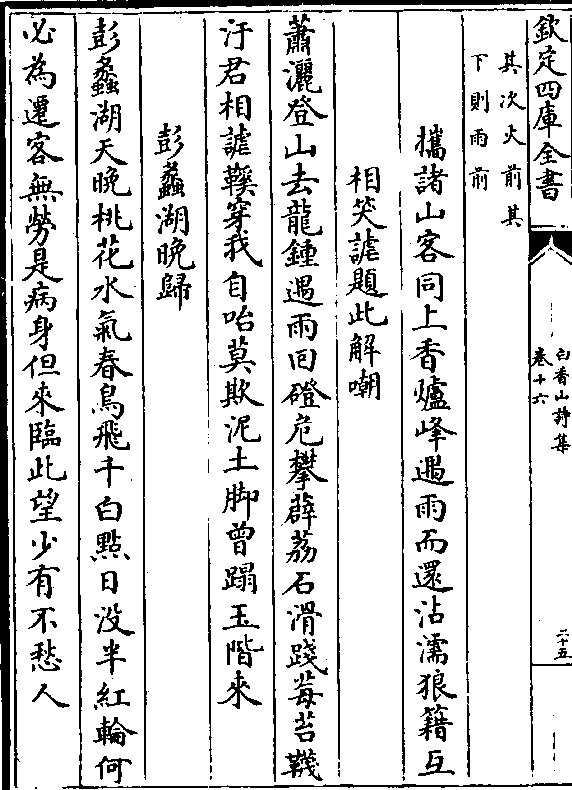 欽定四庫全書
白香山詩集
卷十六
二十五
其次火前其
下則雨前
攜諸山客同上香爐峰遇雨而還沾濡狼籍互
相笑謔題此解嘲
蕭灑登山去龍鍾遇雨回磴危攀薜荔石滑踐莓苔襪
汙君相謔鞵穿我自咍莫欺泥土脚曾蹋玉階來
彭蠡湖晚歸
彭蠡湖天晚桃花水氣春鳥飛千白㸃日没半紅輪何
必為遷客無勞是病身但來臨此望少有不愁人